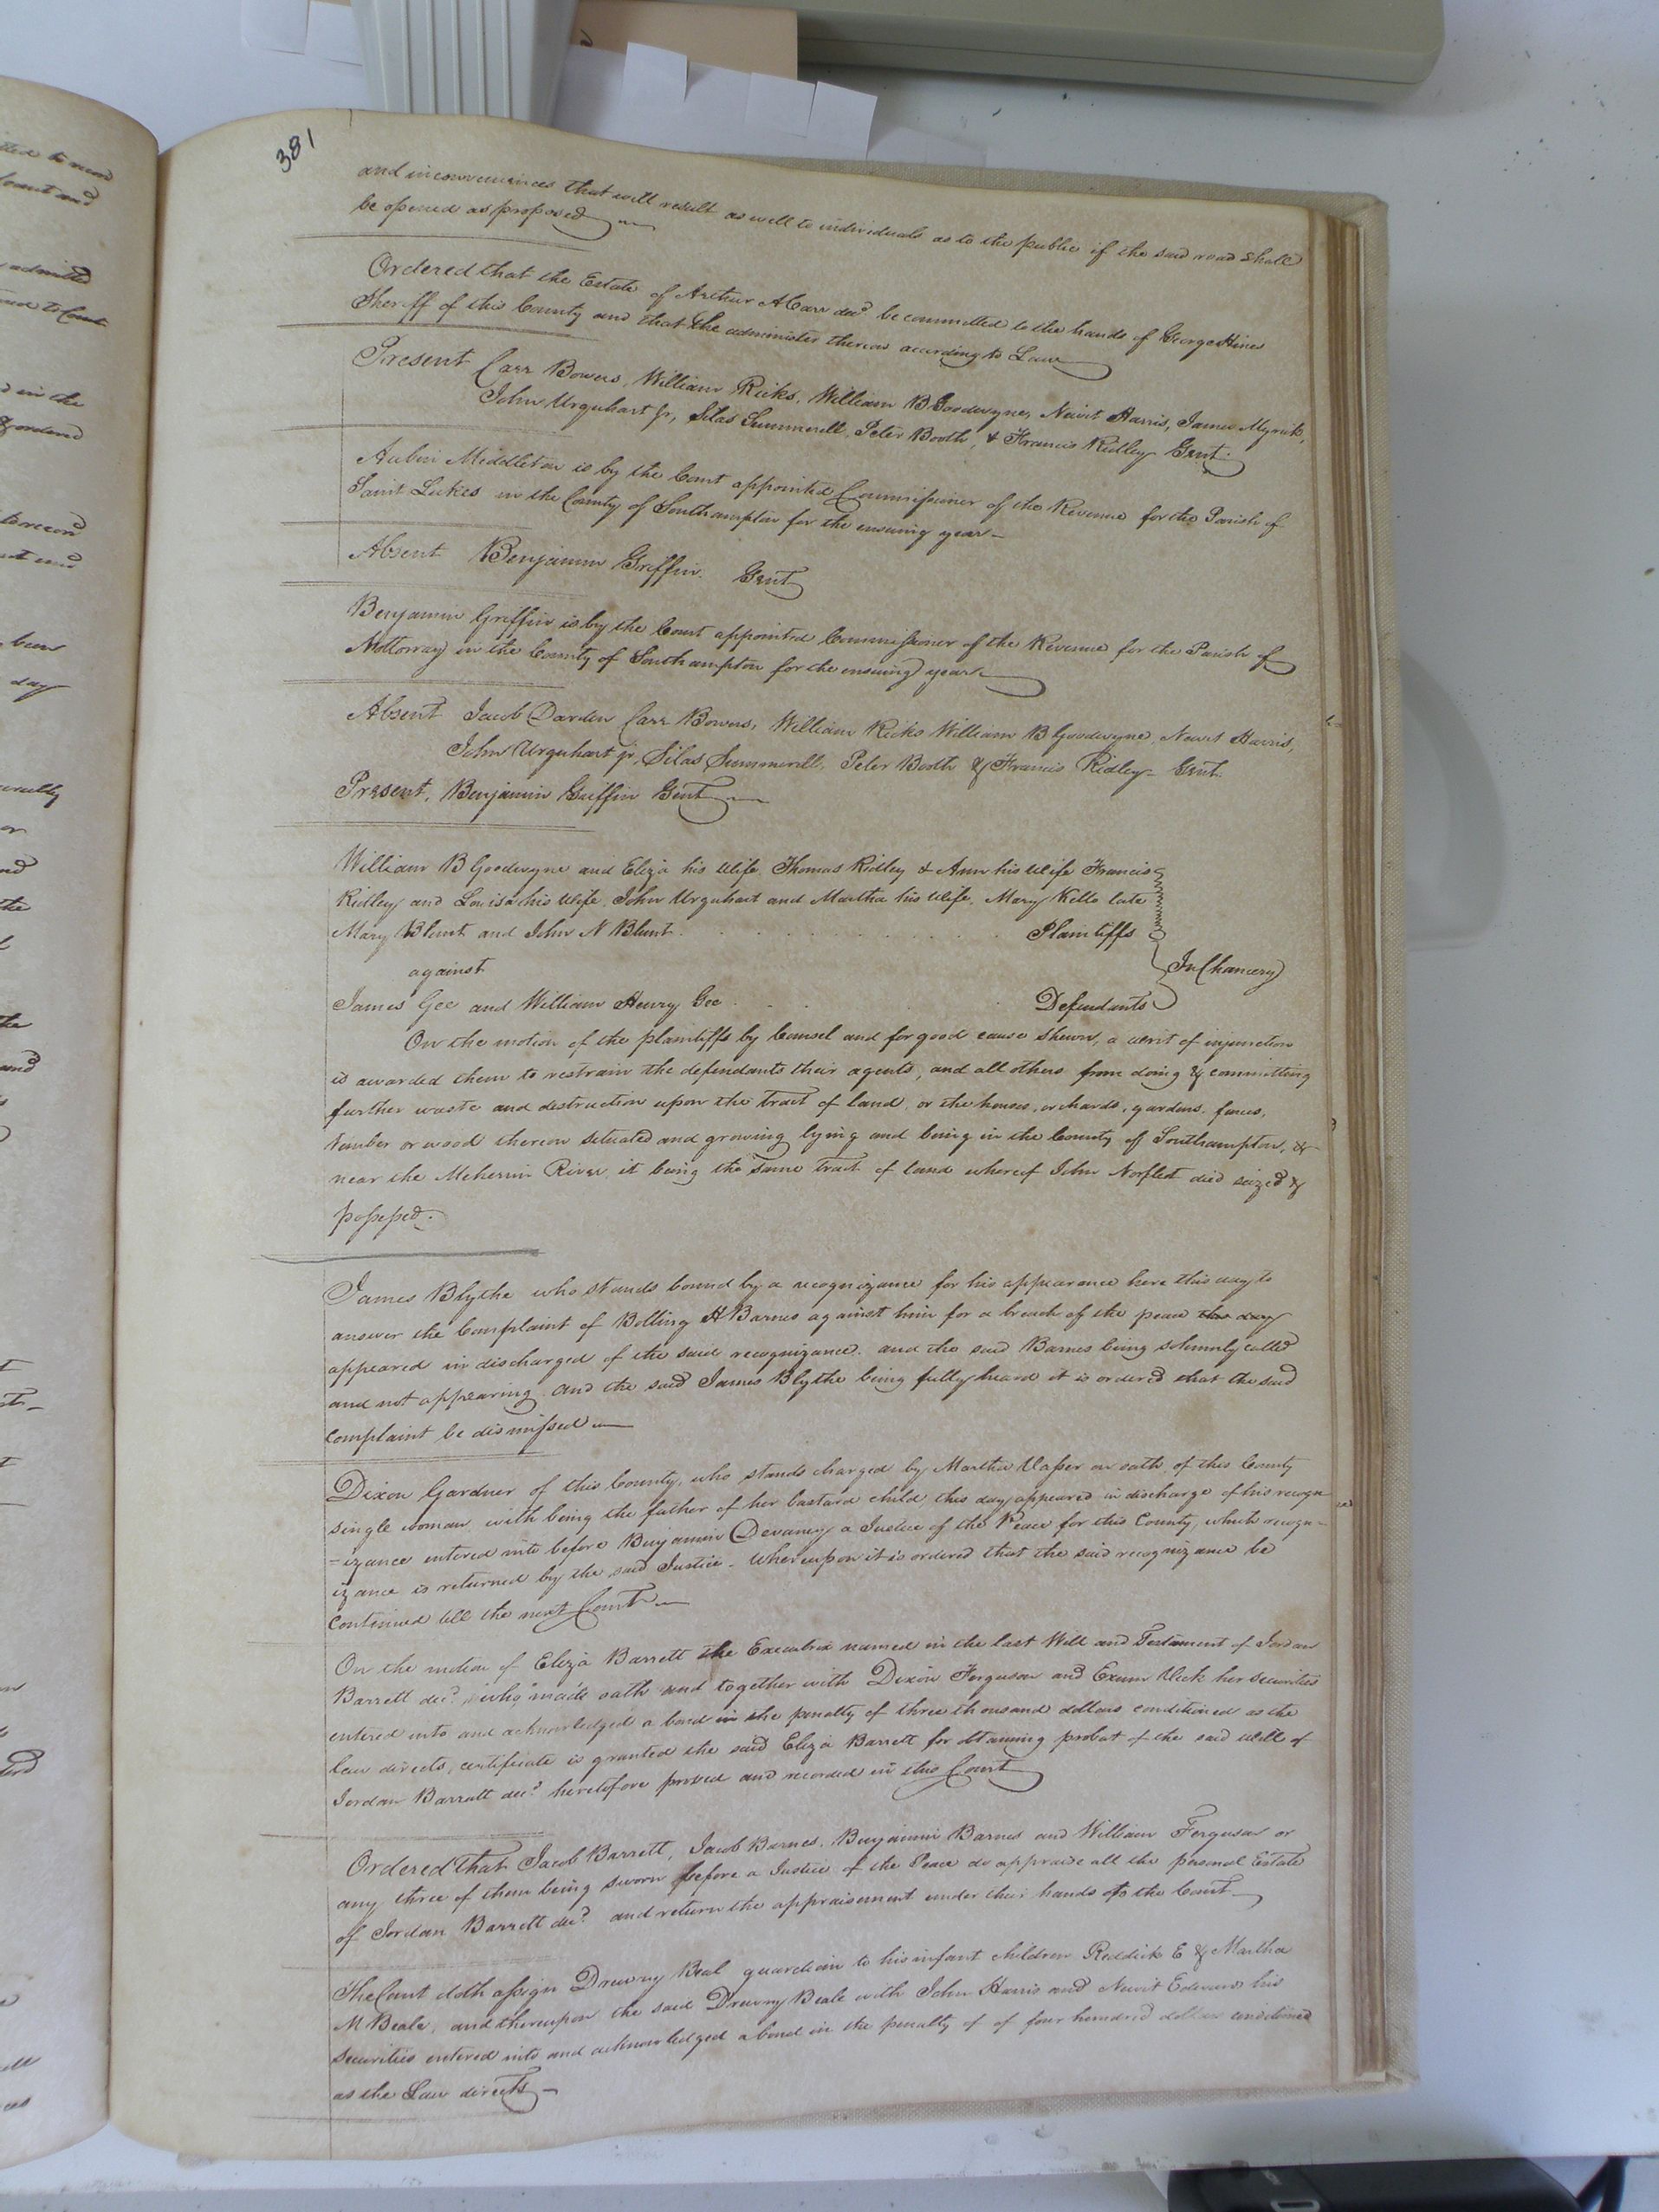 381
and inconveniences that will result as well to individuals as to the public if the said road shall
be opened as proposed
Ordered that the Estate of Arthur A Carr decd. be committed to the hands of George Hines
Sheriff of this County and that he administer thereon according to Law
Present Carr Bowers, William Ricks, William B Goodwyne, Newit Harris, James Myrick,
John Urquhart Jr, Silas Summerell, Peter Booth, & Francis Ridley Gent.
Aubin Middleton is by the Court appointed Commissioner of the Revenue for the Parish of
Saint Lukes in the County of Southampton for the ensuing year
Absent Benjamin Griffin. Gent
Benjamin Griffin is by the Court appointed Commissioner of the Revenue for the Parish of
Nottoway in the County of Southampton for the ensuing year
Absent Jacob Darden Carr Bowers, William Ricks William B Goodwyne, Newit Harris,
John Urquhart jr, Silas Summerell, Peter Booth & Francis Ridley Gent.
Present, Benjamin Griffin Gent
William B Goodwyne and Eliza his Wife, Thomas Ridley & Ann his Wife Francis
Ridley and Louisa his Wife, John Urquhart and Martha his Wife, Mary Kello late
Mary Blunt and John N Blunt . . . Plaintiffs
against In Chancery
James Gee and William Henry Gee . . . Defendants
On the motion of the plaintiffs by Counsel and for good cause shewn, a writ of injunction
is awarded them to restrain the defendants their agents, and all others from doing & committing
further waste and destruction upon the tract of land, or the houses, orchards, gardens, fences,
timber or wood thereon situated and growing lying and being in the County of Southampton, &
near the Meherrin River, it being the same tract of land whereof John Norflet died seized &
possessed.
James Blythe who stands bound by a recognizance for his appearance here this day to
answer the Complaint of Bolling H Barnes against him for a breach of the peace this day
appeared in discharged of the said recognizance. and the said Barnes being solemnly called
and not appearing and the said James Blythe being fully heard it is ordered that the said
complaint be dismissed
Dixon Gardner of this County, who stands charged by Martha Vasser on oath of this County
single woman, with being the father of her bastard child, this day appeared in discharge of his recogn
=izance entered into before Benjamin Devaney a Justice of the Peace for this County, which recogn=
izance is returned by the said Justice. Whereupon it is ordered that the said recognizance be
continued till the next Court
On the motion of Eliza Barrett the Executrix named in the last Will and Testament of Jordan
Barrett decd. who made oath and together with Dixon Ferguson and Exum Vick her securities
entered into and acknowledged a bond in the penalty of three thousand dollars conditioned as the
law directs, certificate is granted the said Eliza Barrett for obtaining probat of the said will of
Jordan Barratt decd. heretofore proved and recorded in this Court
Ordered that Jacob Barrett, Jacob Barnes, Benjamin Barnes and William Ferguson or
any three of them being sworn before a Justice of the Peace do appraise all the personal Estate
of Jordan Barrett decd. and return the appraisement under their hands to the Court
The Court doth assign Drewry Beal guardian to his infant children Reddick E & Martha
M Beale, and thereupon the said Drewry Beale with John Harris and Newit Edwards his
securities entered into and acknowledged a bond in the penalty of of four hundred dollars conditioned
as the Law directs